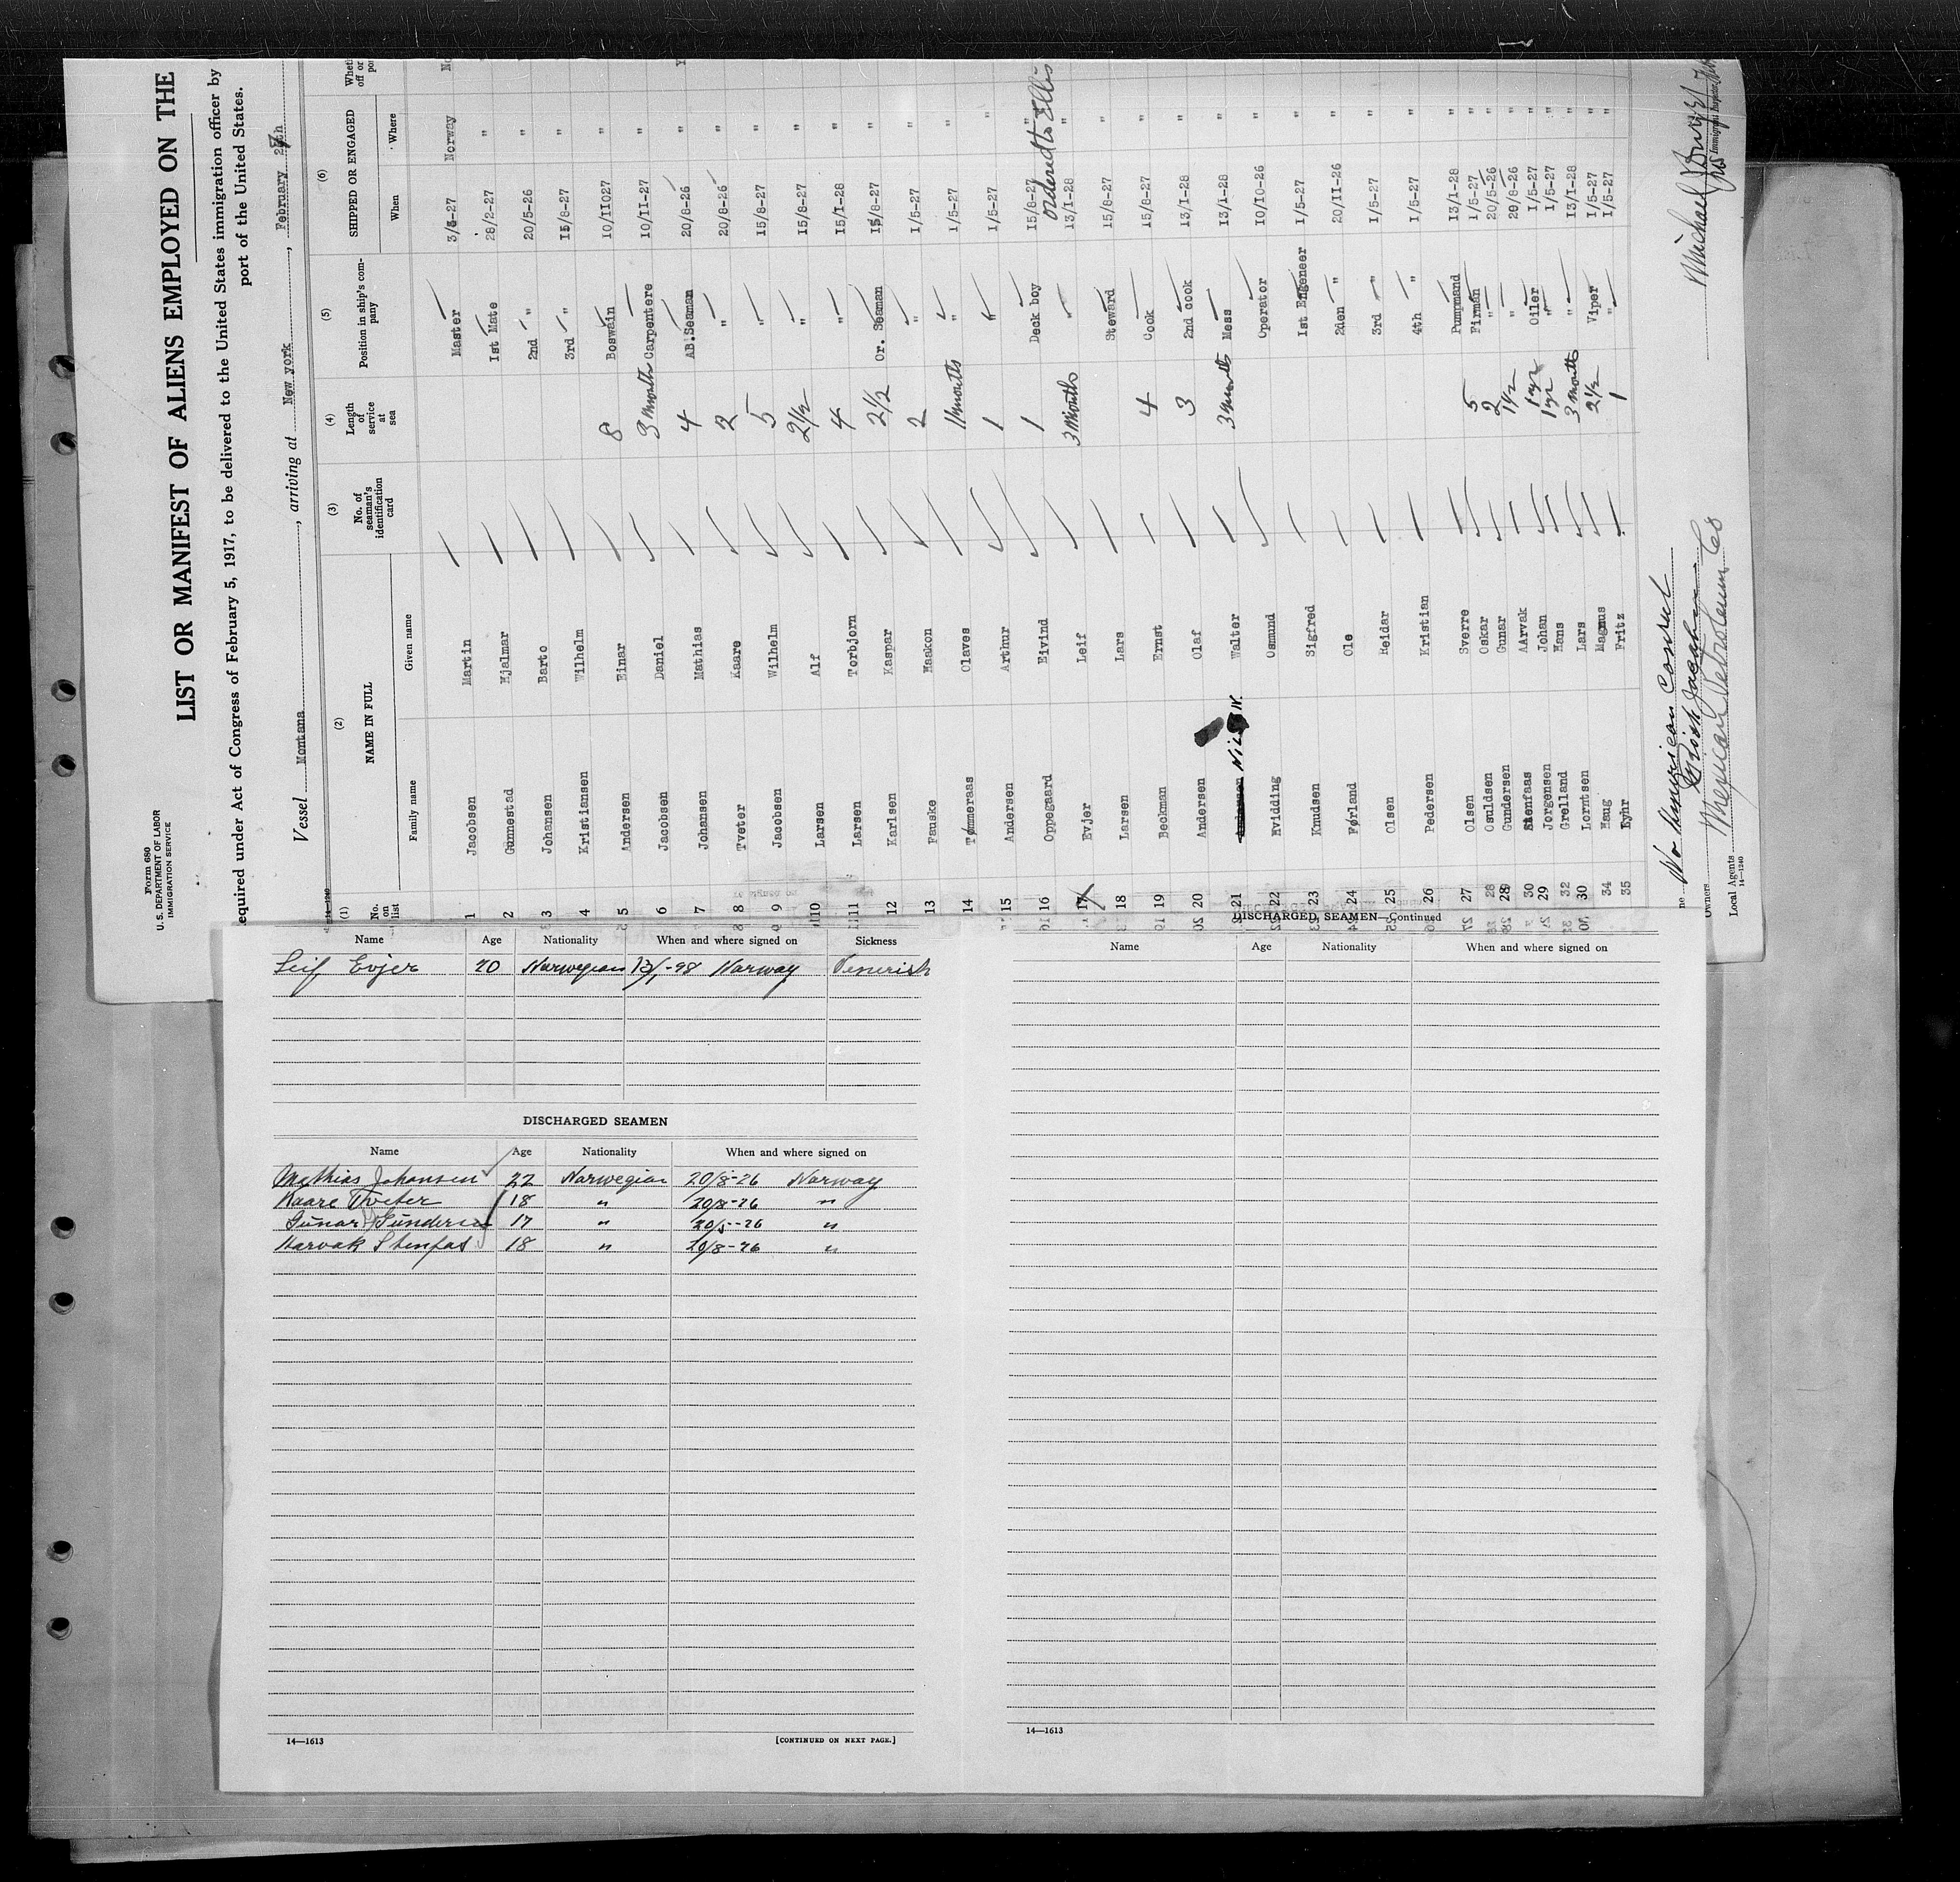 Form 680
U. S. DEPARTMENT OF LABOR
IMMIGRATION SERVICE
LIST OR MANIFEST OF ALIENS EMPLOYED ON THE
equired under Act of Congress of February 5, 1917, to be delivered to the United States immigration officer by
port of the United States.
Vessel Montana, arriving at New york, February 27th
(1) (2) (3) (4) (5) (6)
No. on list NAME IN FULL No. of seaman's identification card Length of service at sea Position in ship's company SHIPPED OR ENGAGED
Family name Given name When Where
1 Jacobsen Martin Master 3/5-27 Norway No
2 Gunnestad Hjalmar 1st Mate 28/2-27 "
3 Johansen Barto 2nd " 20/5-26 "
4 Kristiansen Wilhelm 3rd " 15/8-27 "
5 Andersen Einar 8 Boswain 10/11027 "
6 Jacobsen Daniel 3 months Carpentere 10/11-27 "
7 Johansen Mathias 4 AB.Seaman 20/8-26 " Y
8 Tveter Kaare 2 " 20/8-26 "
9 Jacobsen Wilhelm 5 " 15/8-27 "
10 Larsen Alf 2½ " 15/8-27 "
11 Larsen Torbjorn 4 " 15/1-28 "
12 Karlsen Kaspar 2½ Or. Seaman 15/8-27 "
13 Pauske Haakon 2 " 1/5-27 "
14 Tømmeraas Olaves 11 months " 1/5-27 "
15 Andersen Arthur 1 " 1/5-27 "
16 Oppegaard Eivind 1 Deck boy 15/8-27 "
ordered to Ellis
17 Evjer Leif 3 Months " 13/1-28 "
18 Larsen Lars Steward 15/8-27 "
19 Beckman Ernst 4 Cook 15/8-27 "
20 Andersen Olaf 3 2nd cook 13/1-28 "
21 Walter 3 months Mess 13/1-28 "
22 Hvidding Osmund Operator 10/10-26 "
23 Knudsen Sigfred 1st Engeneer 1/5-27 "
24 Førland Ole 2den " 20/11-26 "
25 Olsen Reidar 3rd " 1/5-27 "
26 Pedersen Kristian 4th " 1/5-27 "
27 Olsen Sverre Pumpmand 13/1-28 "
28 Osuldsen Oskar 5 Firman 1/5-27 "
28 Gundersen Gunar 2 " 20/5-26 "
30 Stenfaas AArvak 1½ " 20/8-26 "
29 Jorgensen Johan 1 yr Oiler 1/5-27 "
32 Grelland Hans 1 yr " 1/5-27 "
30 Lorntsen Lars 3 months " 13/1-28 "
34 Haug Magnus 2½ Viper 1/5-27 "
35 Eyhr Fritz 1 " 1/5-27 "
No American Consul
Owners
Local Agents Mexican Petroleum Co
14-1240
Michael
Immigrant Inspector
Name Age Nationality When and where signed on Sickness
Leif Evjer 20 Norwegian 13/1-28 Norway Venerish
DISCHARGED SEAMEN
Name Age Nationality When and where signed on
Mathias Johansen 22 Norwegian 20/8-26 Norway
Kaare Tveter 18 " 20/8-26 "
Gunar Gundersen 17 " 20/5-26 "
Harvak Stenfas 18 " 20/8-26 "
14—1613
[CONTINUED ON NEXT PAGE.]
DISCHARGED SEAMEN—Continued
Name Age Nationality When and where signed on
14—1613